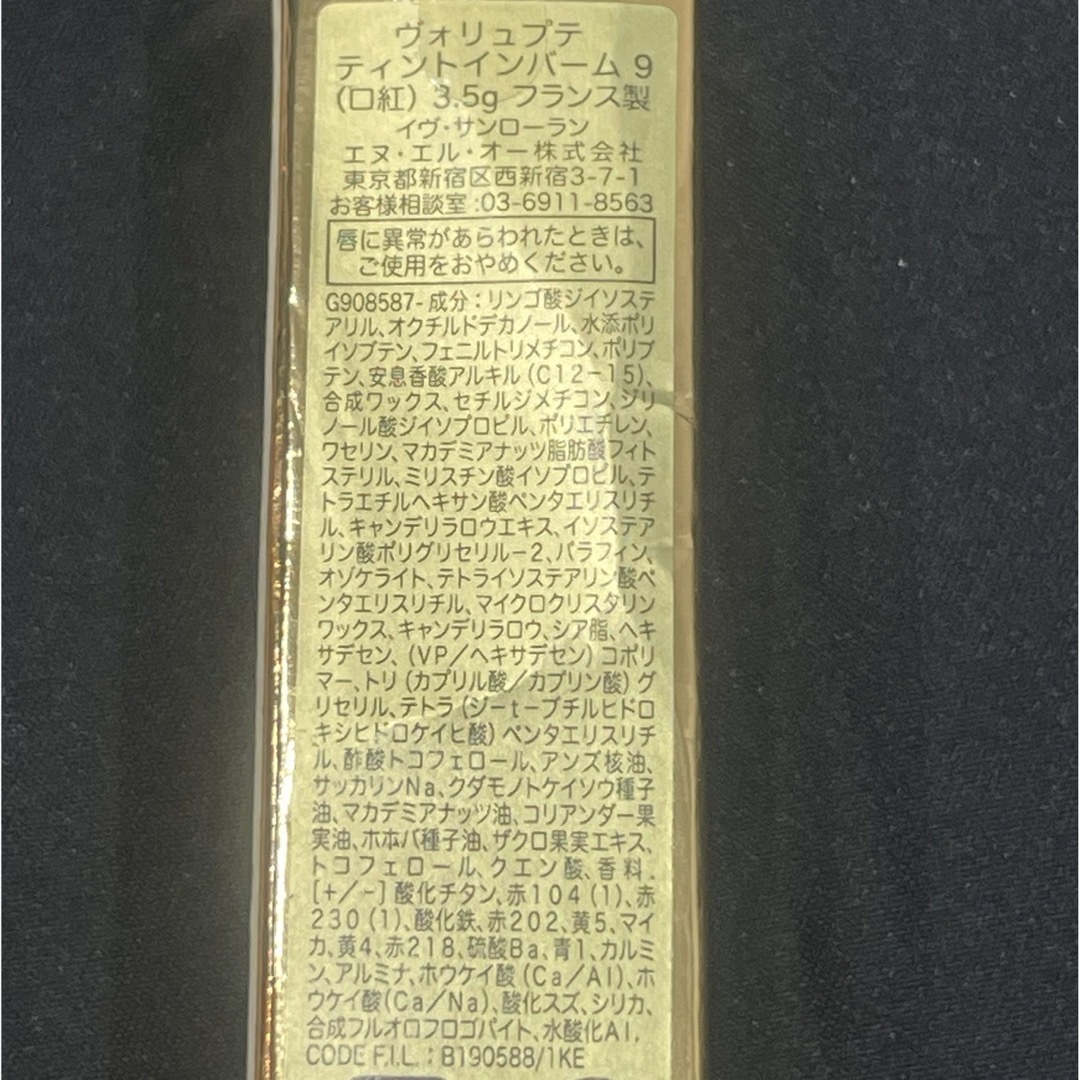 ヴォリュプテ
ティントインバーム 9
(口紅) 3.5g フランス製
イヴ・サンローラン
エヌ・エル・オー株式会社
東京都新宿区西新宿3-7-1
お客様相談室:03-6911-8563
唇に異常があらわれたときは、
ご使用をおやめください。
G908587-成分:リンゴ酸ジイソステ
アリル、オクチルドデカノール、水添ポリ
イソブテン、フェニルトリメチコン、ポリブ
テン、安息香酸アルキル(C12-15)、
合成ワックス、セチルジメチコン、ジリ
ノール酸ジイソプロピル、ポリエチレン、
ワセリン、マカデミアナッツ脂肪酸フィト
ステリル、ミリスチン酸イソプロピル、テ
トラエチルヘキサン酸ペンタエリスリチ
ル、キャンデリラロウエキス、イソステア
リン酸ポリグリセリル-2、パラフィン、
オゾケライト、テトライソステアリン酸ペ
ンタエリスリチル、マイクロクリスタリン
ワックス、キャンデリラロウ、シア脂、ヘキ
サデセン、(VP/ヘキサデセン)コポリ
マー、トリ(カプリル酸/カプリン酸)グ
リセリル、テトラ(ジ-t-ブチルヒドロ
キシヒドロケイヒ酸)ペンタエリスリチ
ル、酢酸トコフェロール、アンズ核油、
サッカリンNa、クダモノトケイソウ種子
油、マカデミアナッツ油、コリアンダー果
実油、ホホバ種子油、ザクロ果実エキス、
トコフェロール、クエン酸、香料.
[+/-]酸化チタン、赤104(1)、赤
230(1)、酸化鉄、赤202、黄5、マイ
カ、黄4、赤218、硫酸Ba、青1、カルミ
ン、アルミナ、ホウケイ酸(Ca/Al)、ホ
ウケイ酸(Ca/Na)、酸化スズ、シリカ、
合成フルオロフロゴパイト、水酸化Al,
CODE F.I.L. : B190588/1KE